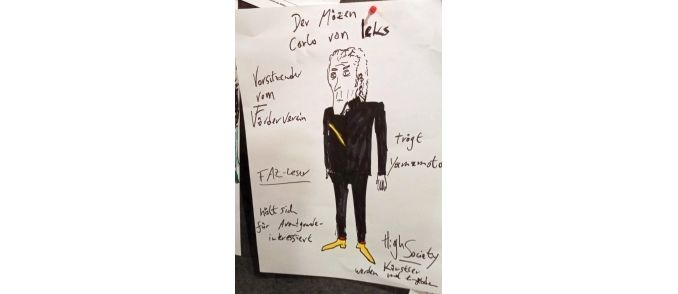 Der Mäzen
Carlo von leks
Vorsitzender
vom
Förderverein
FAZ-Leser
hält sich
für Avantgarde-
interessiert
trägt
Yamamoto
High Society
werden Künstler